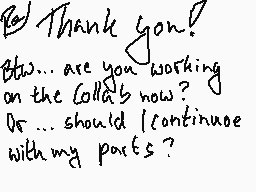 Re/ Thank you!
Btw... are you working
on the Collab now?
Or ... should I continuoe
with my parts?